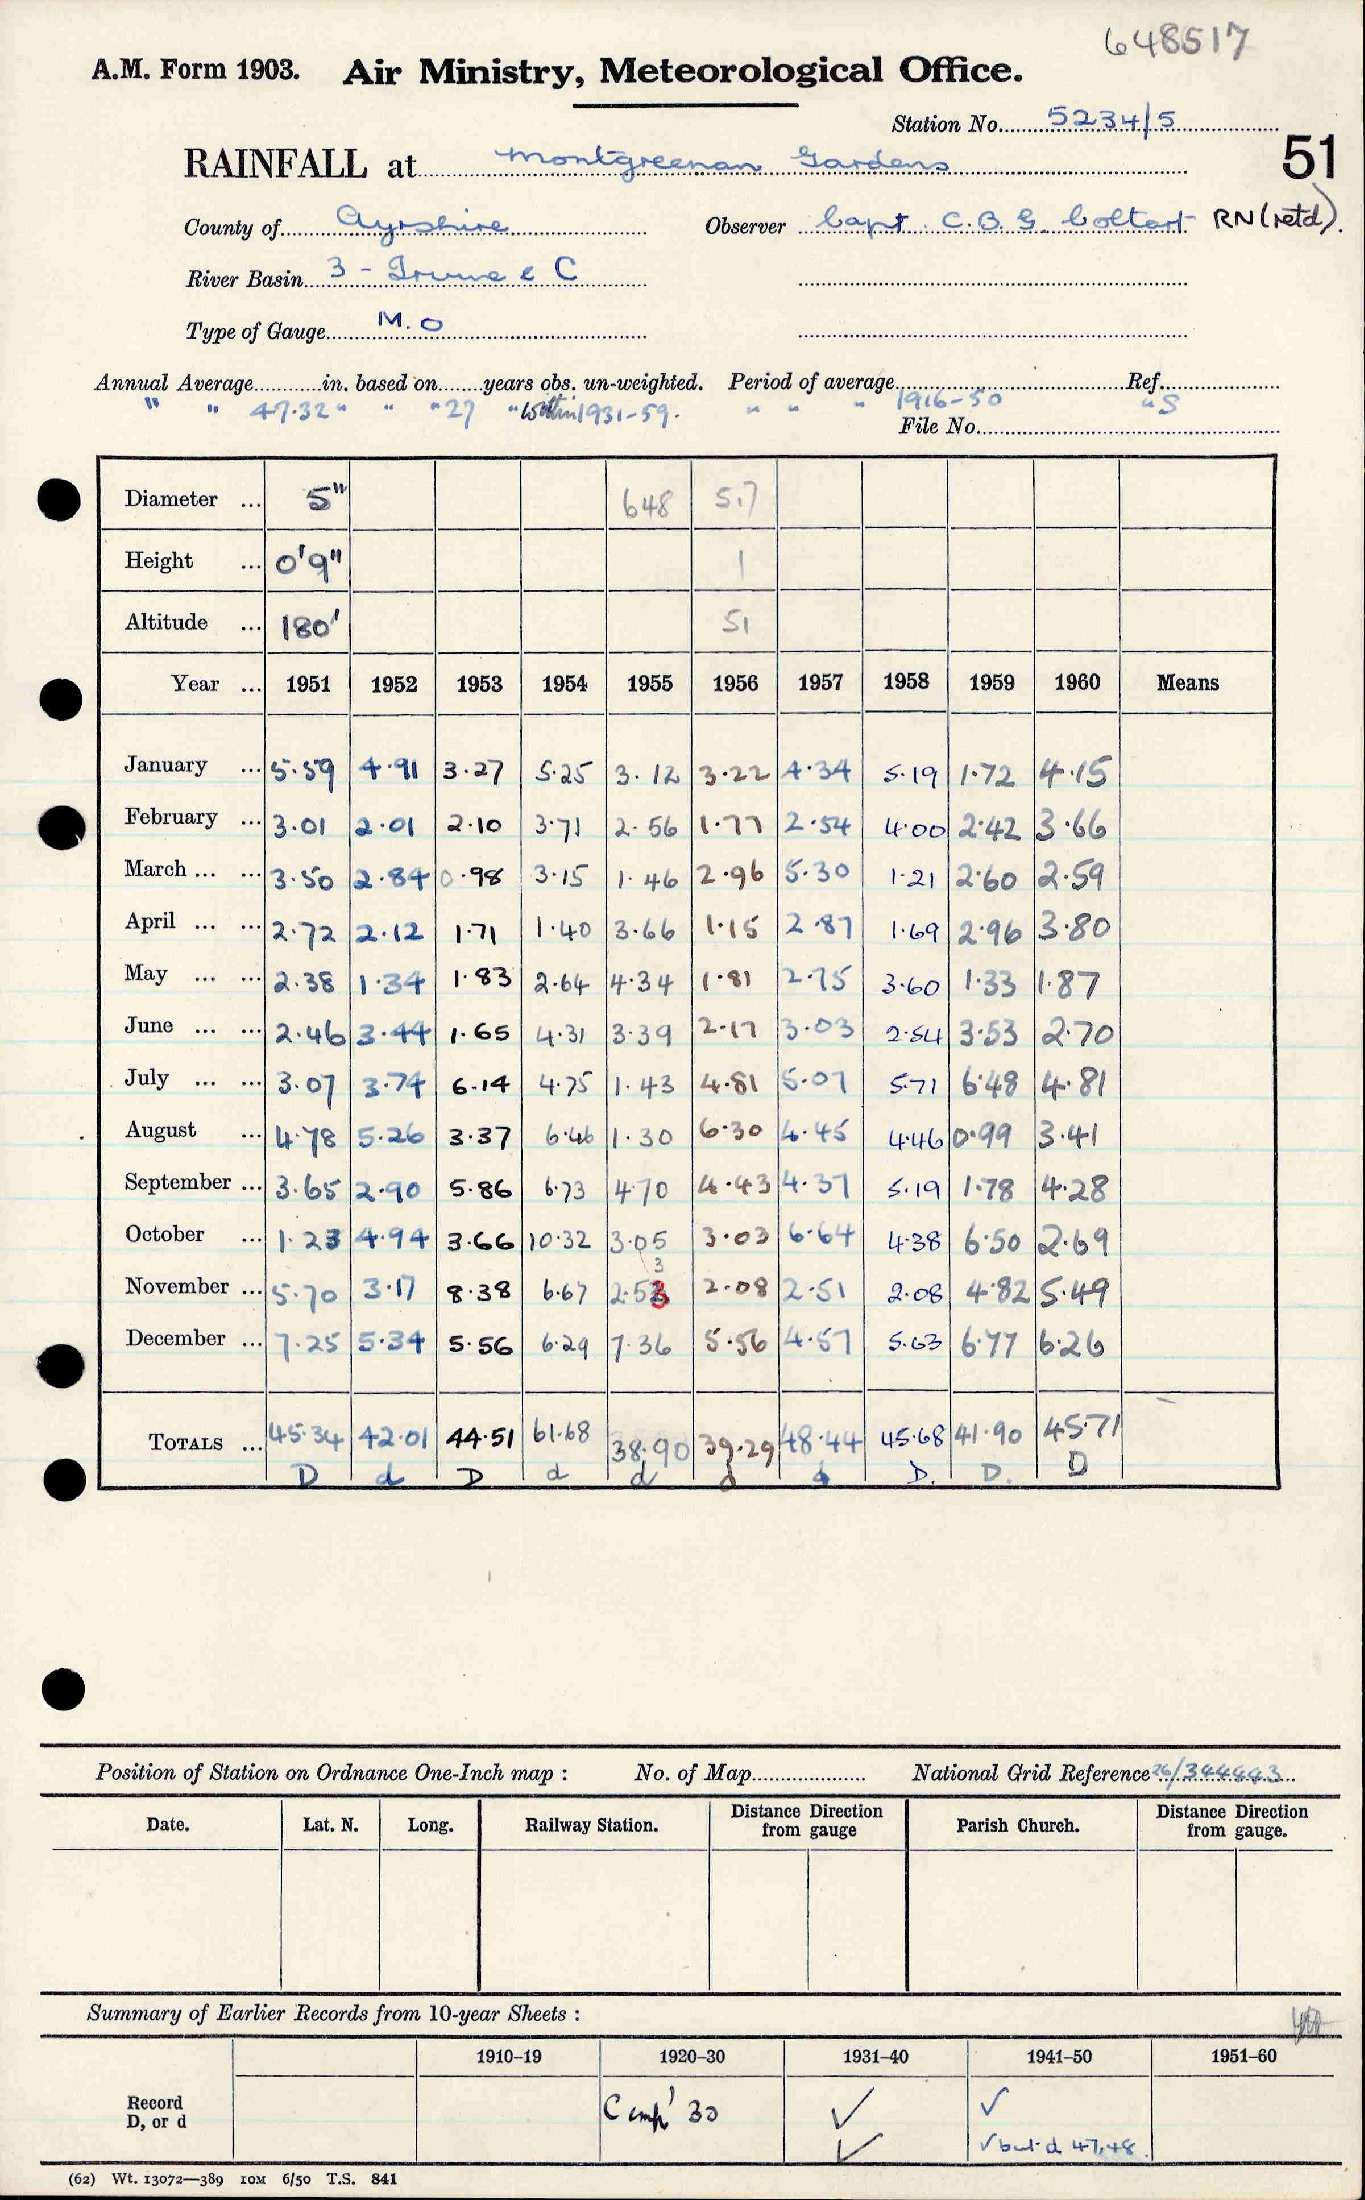 648517
A.M. Form 1903. Air Ministry, Meteorological Office.
Station No. 5234/5
RAINFALL at Montgreenan Gardens 51
County of Ayrshire Observer Capt. C.B.G. Coltart RN (retd).
River Basin 3 - Irvine & C
Type of Gauge M.O
Annual Average in. based on years obs. un-weighted. Period of average Ref.
" " 47.32 " " " 27 " within 1931-59. " " " 1916-50 " S
File No.
Diameter ... 5" 648 517
Height ... 0'9" 1
Altitude ... 180' 51
Year ... 1951 1952 1953 1954 1955 1956 1957 1958 1959 1960 Means
January ... 5.59 4.91 3.27 5.25 3.12 3.22 4.34 5.19 1.72 4.15
February ... 3.01 2.01 2.10 3.71 2.56 1.77 2.54 4.00 2.42 3.66
March ... ... 3.50 2.84 0.98 3.15 1.46 2.96 5.30 1.21 2.60 2.59
April ... ... 2.72 2.12 1.71 1.40 3.66 1.15 2.87 1.69 2.96 3.80
May ... ... 2.38 1.34 1.83 2.64 4.34 1.81 2.75 3.60 1.33 1.87
June ... ... 2.46 3.44 1.65 4.31 3.39 2.17 3.03 2.54 3.53 2.70
July ... ... 3.07 3.74 6.14 4.75 1.43 4.81 5.07 5.71 6.48 4.81
August ... 4.78 5.26 3.37 6.46 1.30 6.30 4.45 4.46 0.99 3.41
September ... 3.65 2.90 5.86 6.73 4.70 4.43 4.37 5.19 1.78 4.28
October ... 1.23 4.94 3.66 10.32 3.05 3.03 6.64 4.38 6.50 2.69
3
November ... 5.70 3.17 8.38 6.67 2.53 2.08 2.51 2.08 4.82 5.49
December ... 7.25 5.34 5.56 6.29 7.36 5.56 4.57 5.63 6.77 6.26
TOTALS ... 45.34 42.01 44.51 61.68 38.90 39.29 48.44 45.68 41.90 45.71
D d D d d d d D. D. D
Position of Station on Ordnance One-Inch map : No. of Map National Grid Reference 26/344443
Date. Lat. N. Long. Railway Station. Distance Direction from gauge Parish Church. Distance Direction from gauge.
Summary of Earlier Records from 10-year Sheets :
1910–19 1920–30 1931–40 1941–50 1951–60
Record D, or d Comp' 30 ✓ ✓
✓ ✓ but d 47,48
(62) Wt. 13072—389 10M 6/50 T.S. 841